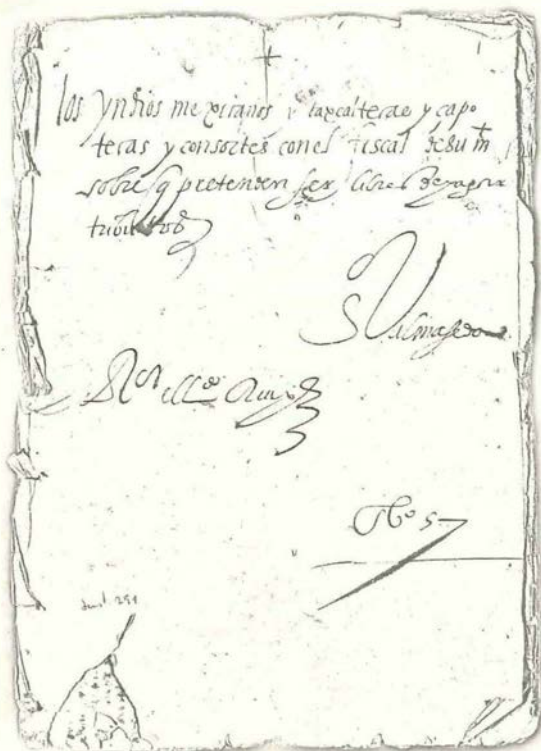 los yndios mexicanos y taxcaltecas y capo
tecas y consortes con el fiscal de su m
sobre q pretenden ser libres de pagar
tributos
S Valmaseda
Ror
Just. 291